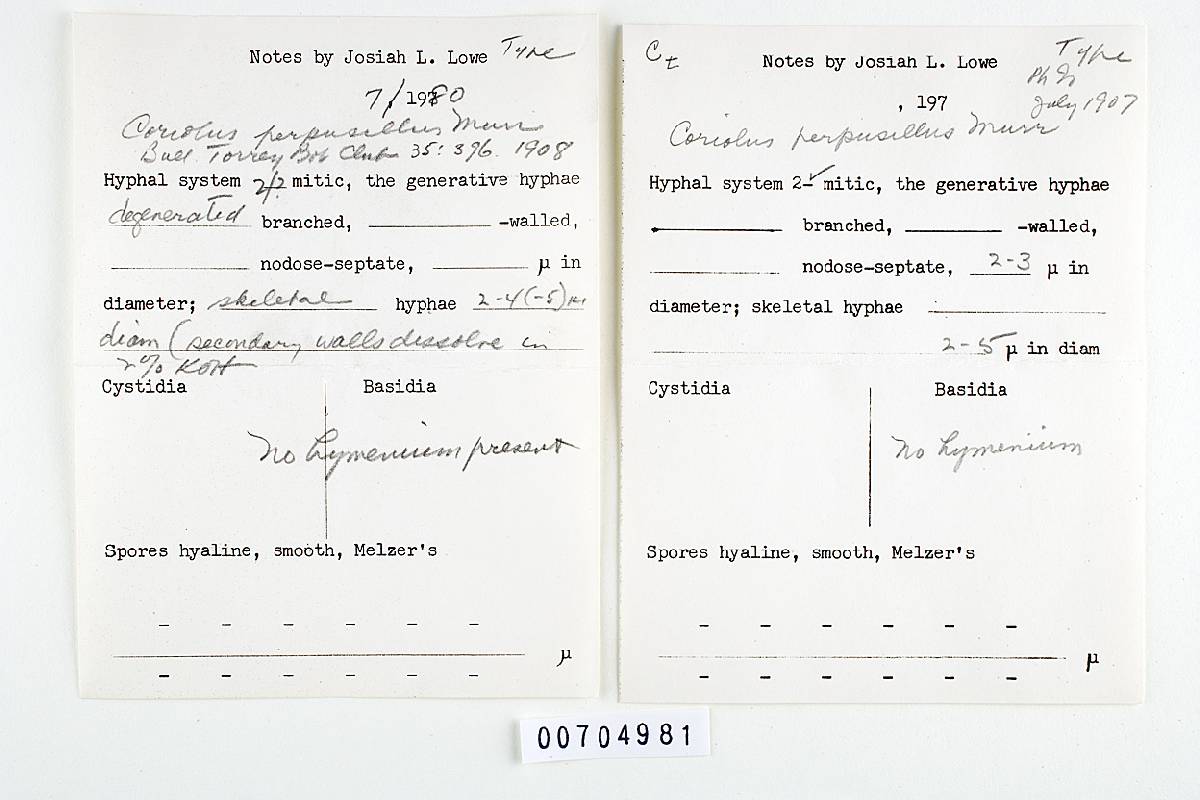 Notes by Josiah L. Lowe Type
7/1980
Coriolus perpusillus Murr
Bull. Torrey Bot Club 35: 396. 1908
Hyphal system 2/2 mitic, the generative hyphae
degenerated branched, -walled,
nodose-septate, µ in
diameter; skeletal hyphae 2-4(-5)µ
diam (secondary walls dissolve in
2% KOH
Cystidia Basidia
No hymenium present
Spores hyaline, smooth, Melzer's
- - - - - -
µ
- - - - - -
Ct Notes by Josiah L. Lowe Type
, 197 July 1907
Coriolus perpusillus Murr
Hyphal system 2-mitic, the generative hyphae
branched, -walled,
nodose-septate, 2-3 µ in
diameter; skeletal hyphae
2-5 µ in diam
Cystidia Basidia
No hymenium
Spores hyaline, smooth, Melzer's
- - - - - -
µ
- - - - - -
00704981